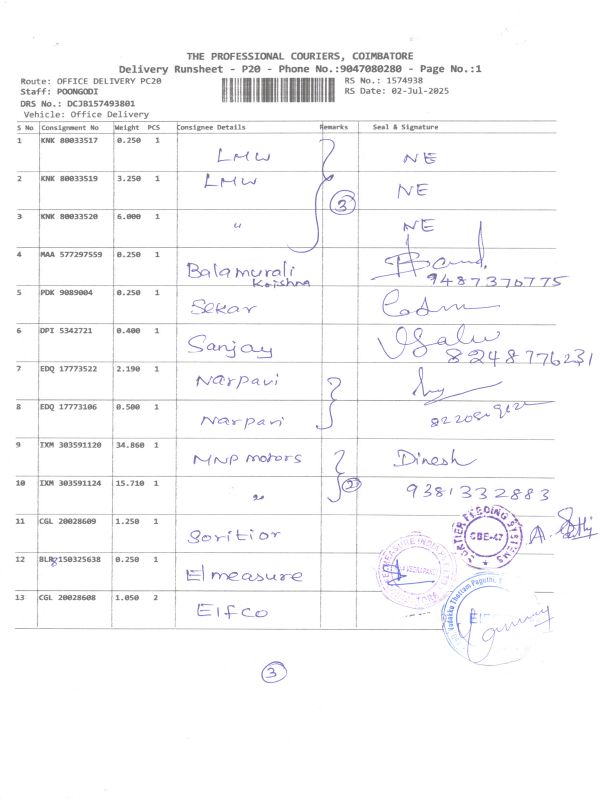 THE PROFESSIONAL COURIERS, COIMBATORE
Delivery Runsheet - P20 - Phone No.:9047080280 - Page No.:1
Route: OFFICE DELIVERY PC20 RS No.: 1574938
Staff: POONGODI RS Date: 02-Jul-2025
DRS No.: DCJB157493801
Vehicle: Office Delivery
S No Consignment No Weight PCS Consignee Details Remarks Seal & Signature
1 KNK 80033517 0.250 1 LMW NE
2 KNK 80033519 3.250 1 LMW NE
3
3 KNK 80033520 6.000 1 " NE
4 MAA 577297559 0.250 1 Balamurali Krishna 9487370775
5 PDK 9089004 0.250 1 Sekar
6 DPI 5342721 0.400 1 Sanjay 8248776231
7 EDQ 17773522 2.190 1 Narpavi
8 EDQ 17773106 0.500 1 Narpavi
9 IXM 303591120 34.860 1 MNP motors Dinesh
10 IXM 303591124 15.710 1 " 2 9381332883
11 CGL 20028609 1.250 1 Soritior
FEEDING SYSTEMS
CBE-47
12 BLR 150325638 0.250 1 Elmeasure
13 CGL 20028608 1.050 2 Elfco
Vadakku Thottam
3